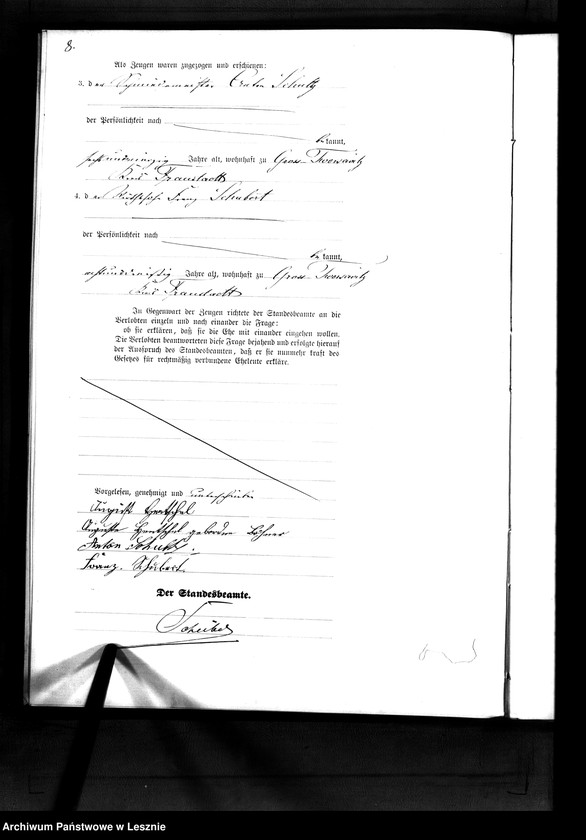 8.
Als Zeugen waren zugezogen und erschienen:
3. der Schmiedemeister Anton Schultz
der Persönlichkeit nach
bekannt,
Jahre alt, wohnhaft zu Gross-
Kreis Fraustadt
4. der Franz Schubert
der Persönlichkeit nach
bekannt,
Jahre alt, wohnhaft zu Gross-
Kreis Fraustadt
In Gegenwart der Zeugen richtete der Standesbeamte an die
Verlobten einzeln und nach einander die Frage:
ob sie erklären, daß sie die Ehe mit einander eingehen wollen.
Die Verlobten beantworteten diese Frage bejahend und erfolgte hierauf
der Ausspruch des Standesbeamten, daß er sie nunmehr kraft des
Gesetzes für rechtmäßig verbundene Eheleute erkläre.
Vorgelesen, genehmigt und unterschrieben
August Hentschel
Auguste Hentschel geborene
Anton Schultz.
Franz. Schubert.
Der Standesbeamte.
Archiwum Państwowe w Lesznie